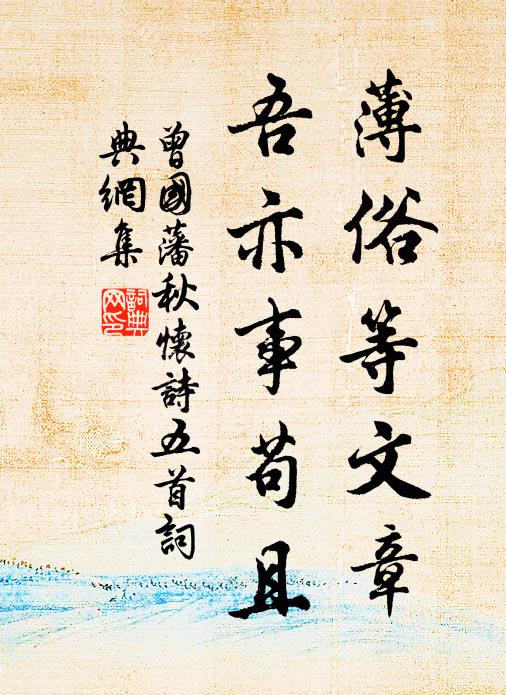 薄俗等文章
吾亦事苟且
曾國藩秋懷詩五首詞
典網集
詞典
网印